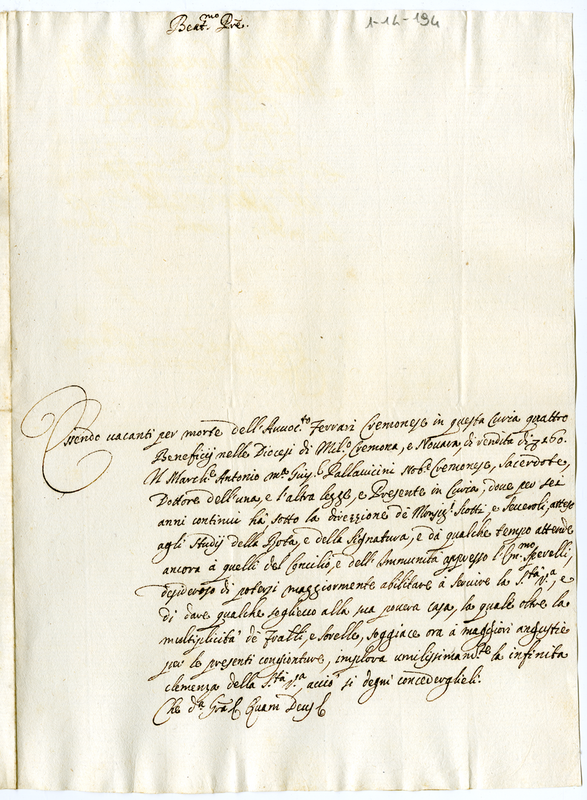 Beat.mo Pre.
1-14-194
Essendo vacanti per morte dell'Avvoc.to Ferrari Cremonese in questa Curia quattro
Beneficij nelle Diocesi di Mil.o Cremona, e Novara, di rendita di 360.
Il March.e Antonio M.a Pallavicini Nob.e Cremonese, Sacerdote,
Dottore dell'una, e l'altra legge, e Presente in Curia, dove per sei
anni continui hà, sotto la direzzione de Monsig.i Scotti, e Severoli, atteso
agli Studij della Rota, e della Signatura, e da qualche tempo attende
ancora à quelli del Concilio, e dell'Immunità appresso l' Crivelli,
desideroso di potersi maggiormente abilitare à servire la S.tà V.a, e
di dare qualche soglievo alla sua povera casa, la quale oltre la
multiplicità de Fratelli e Sorelle, soggiace ora à maggiori angustie
per le presenti congionture, implora umilissimam.te la infinita
clemenza della S.tà V.a, acciò si degni concederglieli.
Che d.a Gra Quam Deus